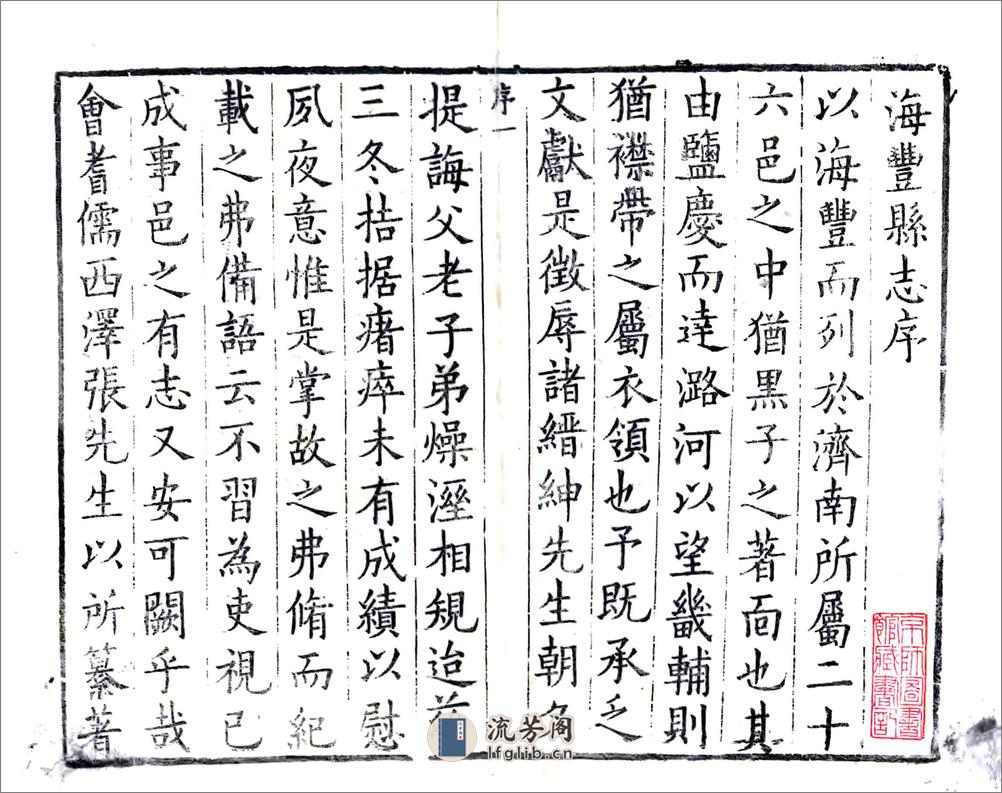 海豐縣志序
以海豐而列於濟南所屬二十
六邑之中猶黑子之著面也其
由鹽慶而達潞河以望畿輔則
猶襟帶之屬衣領也予既承乏
文獻是徵辱諸縉紳先生朝夕
序一
提誨父老子弟燥溼相規迨茲
三冬拮据瘏瘁未有成績以慰
夙夜意惟是掌故之弗脩而紀
載之弗備語云不習為吏視已
成事邑之有志又安可闕乎哉
會耆儒西澤張先生以所纂著
京師圖書
館藏書記
流芳阁
lfglib.cn